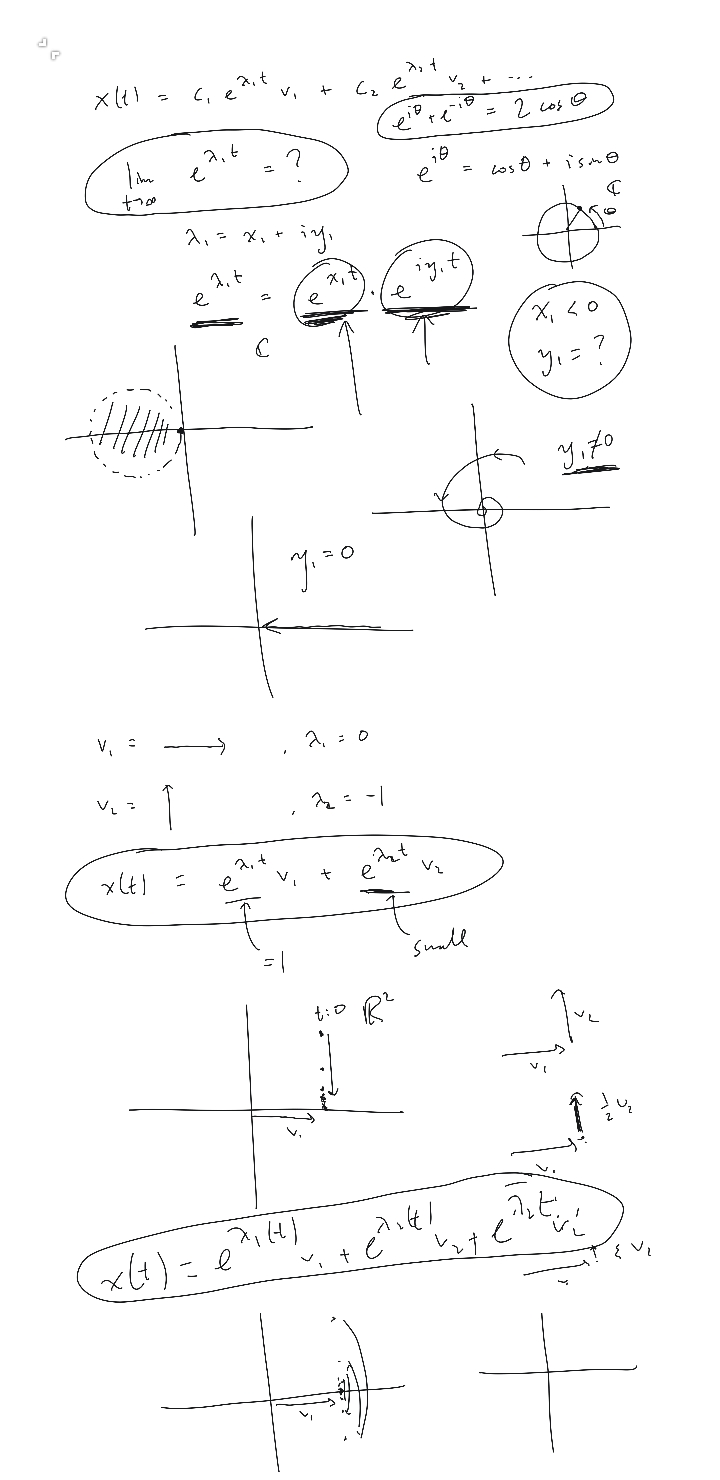 x(t) = c₁ e^{λ₁t} v₁ + c₂ e^{λ₂t} v₂ + ...
e^{iθ} + e^{-iθ} = 2 cos θ
lim t→∞ e^{λ₁t} = ?
e^{iθ} = cosθ + i sin θ
ℂ
θ
λ₁ = x₁ + iy₁
e^{λ₁t} = e^{x₁t} · e^{iy₁t}
x₁ < 0
y₁ = ?
ℂ
y₁ ≠ 0
y₁ = 0
v₁ = → , λ₁ = 0
v₂ = ↑ , λ₂ = -1
x(t) = e^{λ₁t} v₁ + e^{λ₂t} v₂
= 1
small
t=0 ℝ²
v₂
v₁
v₁
½ v₂
v₁
x(t) = e^{λ₁(t)} v₁ + e^{λ₂(t)} v₂ + e^{λ̄₂t} v₂
ε v₂
v₁